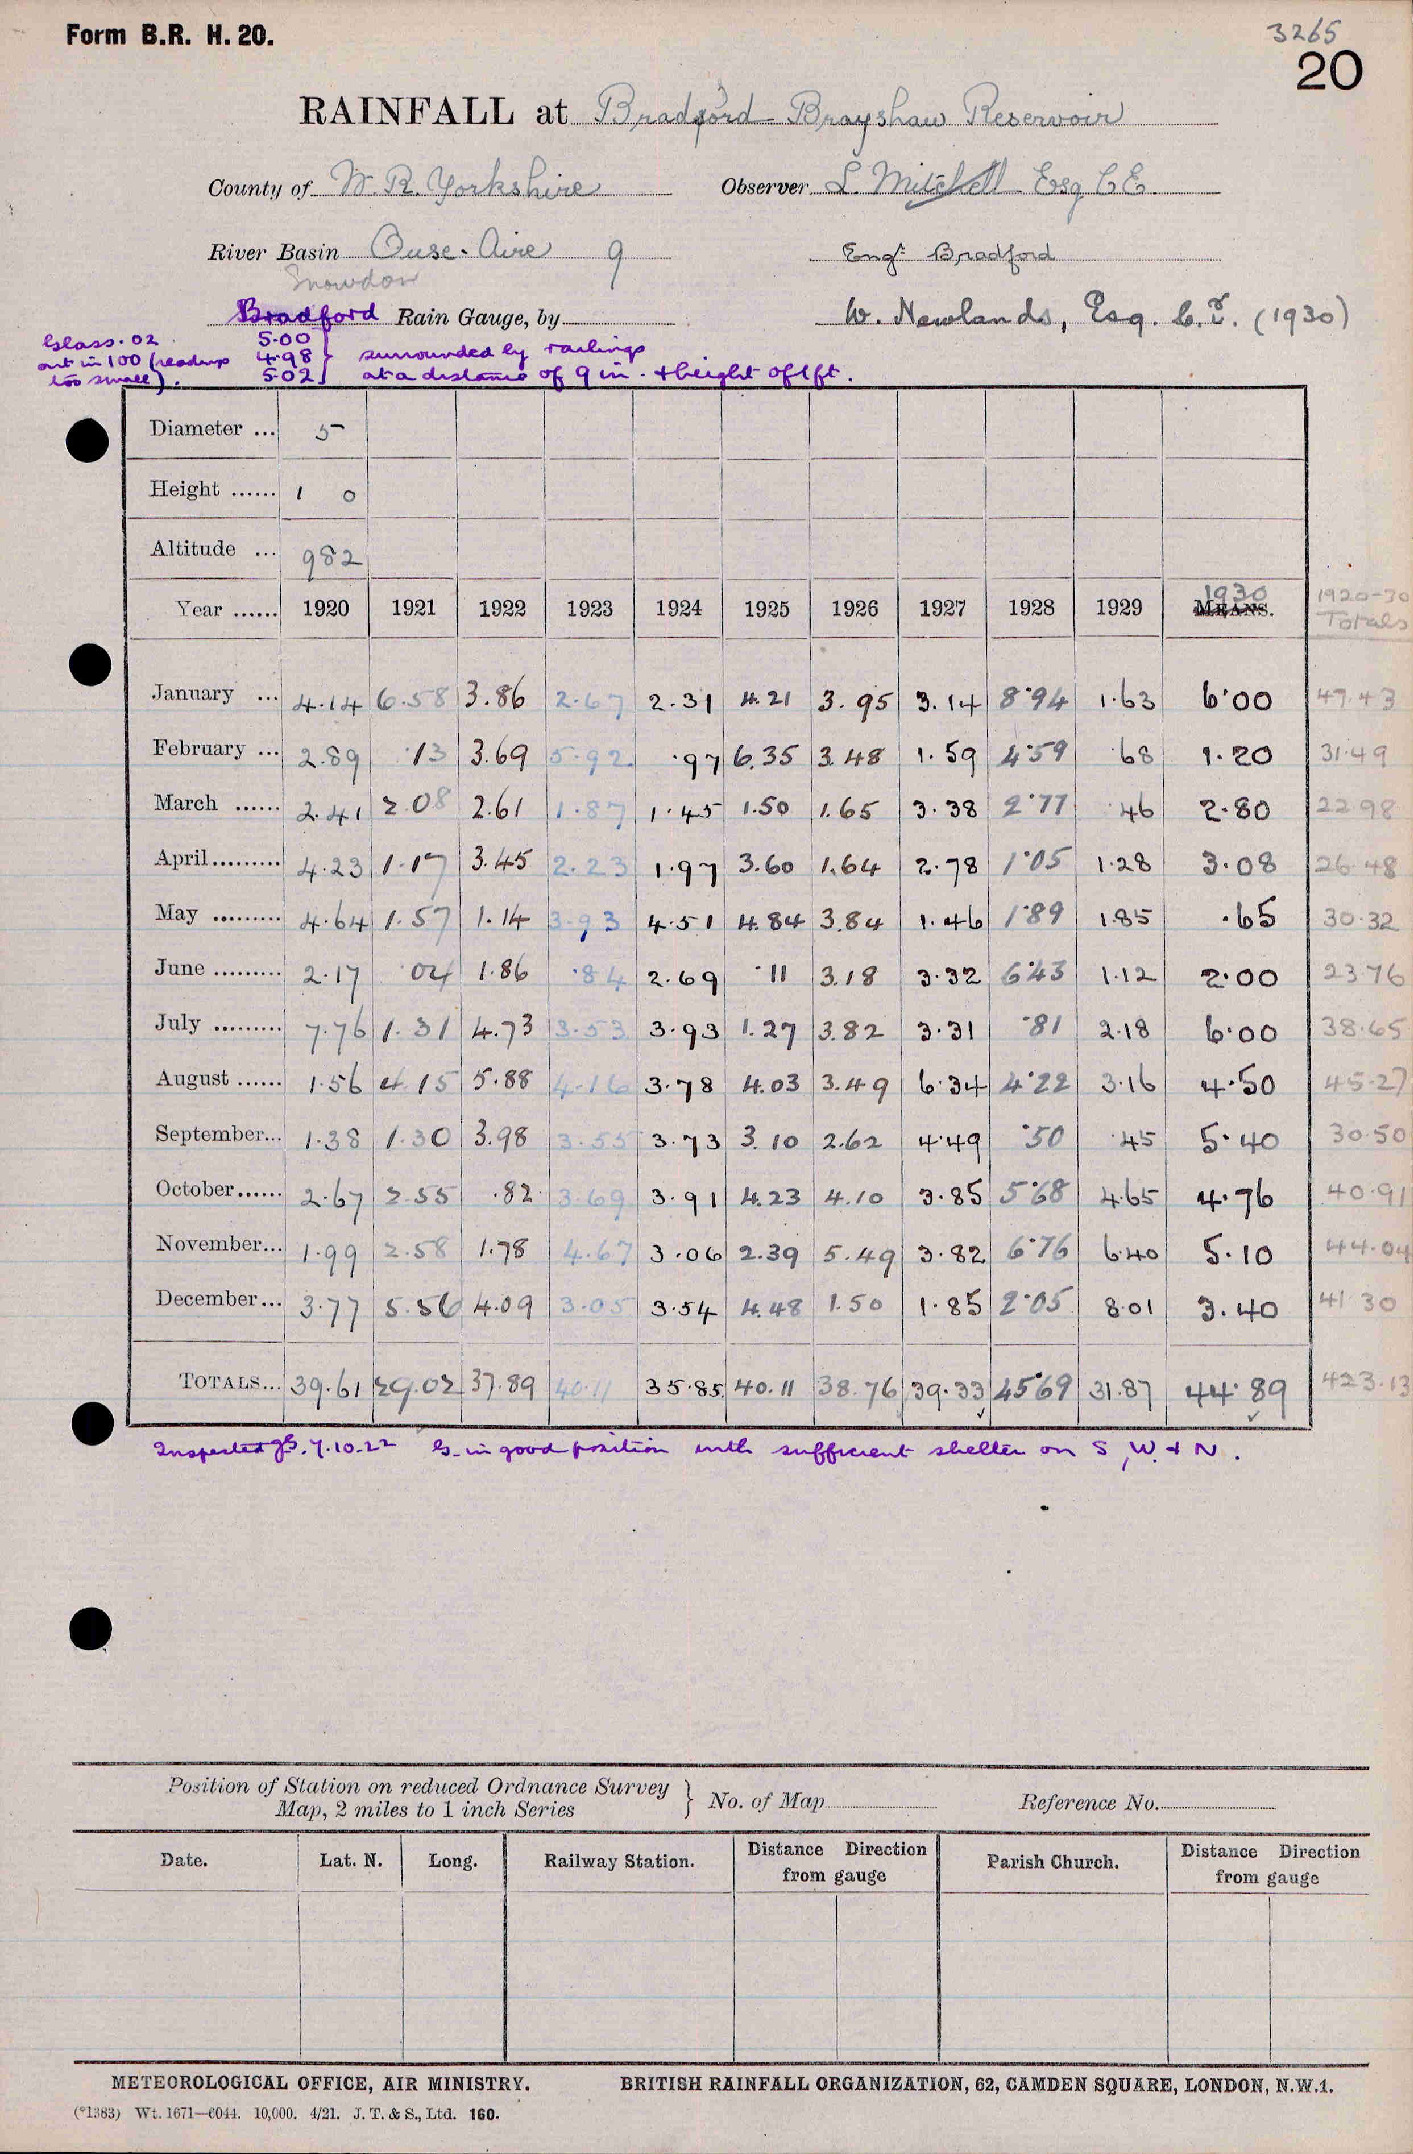 Form B.R. H. 20.
3265
20
RAINFALL at Bradford Brayshaw Reservoir
County of W. R. Yorkshire Observer L. Mitchell Esq C E
River Basin Ouse. Aire 9 Engr. Bradford
Snowdon
Bradford Rain Gauge, by W. Newlands, Esq. C.E. (1930)
Glass .02 5.00
out in 100 (readings 4.98 surrounded by railings
too small). 5.02 at a distance of 9 in. & height of 1 ft.
Diameter ... 5
Height ...... 1 0
Altitude ... 982
Year ...... 1920 1921 1922 1923 1924 1925 1926 1927 1928 1929 MEANS. 1930 1920-30 Totals
January ... 4.14 6.58 3.86 2.67 2.31 4.21 3.95 3.14 8.94 1.63 6.00 47.43
February ... 2.89 .13 3.69 5.92 .97 6.35 3.48 1.59 4.59 .68 1.20 31.49
March ...... 2.41 2.08 2.61 1.87 1.45 1.50 1.65 3.38 2.77 .46 2.80 22.98
April......... 4.23 1.17 3.45 2.23 1.97 3.60 1.64 2.78 1.05 1.28 3.08 26.48
May ......... 4.64 1.57 1.14 3.93 4.51 4.84 3.84 1.46 1.89 1.85 .65 30.32
June ......... 2.17 .04 1.86 .84 2.69 .11 3.18 3.32 6.43 1.12 2.00 23.76
July ......... 7.76 1.31 4.73 3.53 3.93 1.27 3.82 3.31 .81 2.18 6.00 38.65
August ...... 1.56 4.15 5.88 4.16 3.78 4.03 3.49 6.34 4.22 3.16 4.50 45.27
September... 1.38 1.30 3.98 3.55 3.73 3.10 2.62 4.49 .50 .45 5.40 30.50
October...... 2.67 2.55 .82 3.69 3.91 4.23 4.10 3.85 5.68 4.65 4.76 40.91
November... 1.99 2.58 1.78 4.67 3.06 2.39 5.49 3.82 6.76 6.40 5.10 44.04
December... 3.77 5.56 4.09 3.05 3.54 4.48 1.50 1.85 2.05 8.01 3.40 41.30
TOTALS... 39.61 29.02 37.89 40.11 35.85 40.11 38.76 39.33 45.69 31.87 44.89 423.13
Inspected 7.10.22 G. in good position with sufficient shelter on S, W. & N.
Position of Station on reduced Ordnance Survey
Map, 2 miles to 1 inch Series } No. of Map Reference No.
Date. Lat. N. Long. Railway Station. Distance Direction from gauge Parish Church. Distance Direction from gauge
METEOROLOGICAL OFFICE, AIR MINISTRY. BRITISH RAINFALL ORGANIZATION, 62, CAMDEN SQUARE, LONDON, N.W.1.
(*1383) Wt. 1671—6044. 10,000. 4/21. J. T. & S., Ltd. 160.